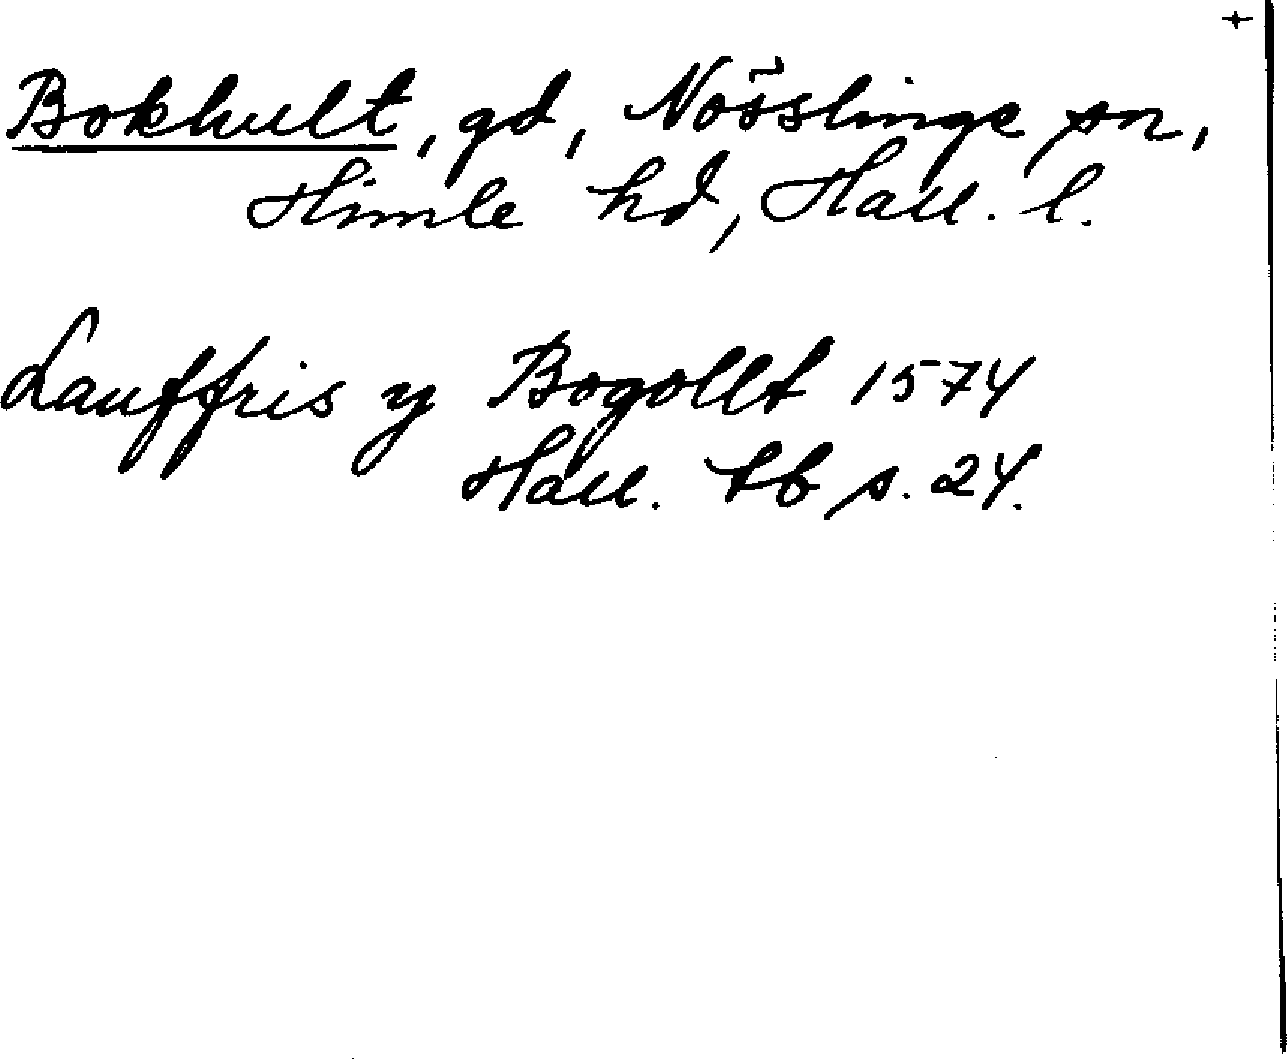 +
Bokhult, gd, Nösslinge sn,
Himle hd, Hall. l.
Lauffris y Bogollt 1574
Hall. tb s. 24.